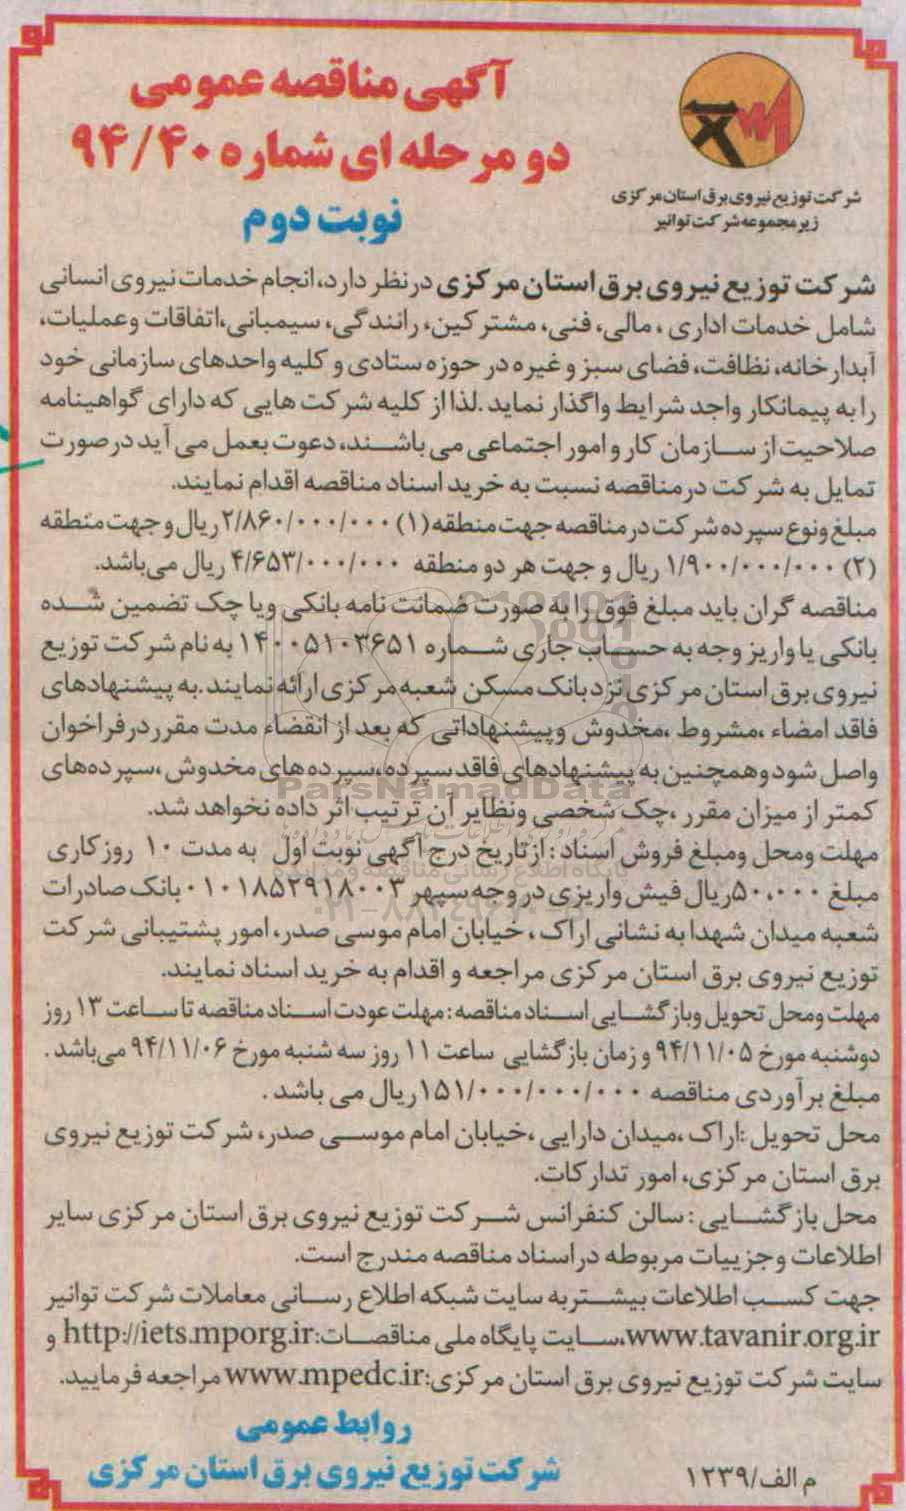 آگهی مناقصه عمومی
دو مرحله ای شماره ۹۴/۴۰
نوبت دوم
شرکت توزیع نیروی برق استان مرکزی
زیر مجموعه شرکت توانیر
شرکت توزیع نیروی برق استان مرکزی در نظر دارد، انجام خدمات نیروی انسانی
شامل خدمات اداری ، مالی، فنی، مشترکین، رانندگی، سیمبانی،اتفاقات وعملیات،
آبدارخانه، نظافت، فضای سبز و غیره در حوزه ستادی و کلیه واحدهای سازمانی خود
را به پیمانکار واجد شرایط واگذار نماید .لذا از کلیه شرکت هایی که دارای گواهینامه
صلاحیت از سازمان کار و امور اجتماعی می باشند، دعوت بعمل می آید در صورت
تمایل به شرکت در مناقصه نسبت به خرید اسناد مناقصه اقدام نمایند.
مبلغ ونوع سپرده شرکت در مناقصه جهت منطقه (۱) ۲/۸۶۰/۰۰۰/۰۰۰ ریال و جهت منطقه
(۲) ۱/۹۰۰/۰۰۰/۰۰۰ ریال و جهت هر دو منطقه ۴/۶۵۳/۰۰۰/۰۰۰ ریال می باشد.
مناقصه گران باید مبلغ فوق را به صورت ضمانت نامه بانکی ویا چک تضمین شده
بانکی یا واریز وجه به حساب جاری شماره ۱۴۰۰۵۱۰۳۶۵۱ به نام شرکت توزیع
نیروی برق استان مرکزی نزد بانک مسکن شعبه مرکزی ارائه نمایند .به پیشنهادهای
فاقد امضاء ،مشروط ،مخدوش وپیشنهاداتی که بعد از انقضاء مدت مقرر در فراخوان
واصل شود وهمچنین به پیشنهادهای فاقد سپرده،سپرده های مخدوش ،سپرده های
کمتر از میزان مقرر ،چک شخصی ونظایر آن ترتیب اثر داده نخواهد شد.
مهلت ومحل ومبلغ فروش اسناد : از تاریخ درج آگهی نوبت اول به مدت ۱۰ روز کاری
مبلغ ۵۰،۰۰۰ریال فیش واریزی در وجه سپهر ۰۱۰۱۸۵۲۹۱۸۰۰۳ بانک صادرات
شعبه میدان شهدا به نشانی اراک ، خیابان امام موسی صدر، امور پشتیبانی شرکت
توزیع نیروی برق استان مرکزی مراجعه و اقدام به خرید اسناد نمایند.
مهلت ومحل تحویل وبازگشایی اسناد مناقصه : مهلت عودت اسناد مناقصه تا ساعت ۱۳ روز
دوشنبه مورخ ۹۴/۱۱/۰۵ و زمان بازگشایی ساعت ۱۱ روز سه شنبه مورخ ۹۴/۱۱/۰۶ می باشد .
مبلغ برآوردی مناقصه ۱۵۱/۰۰۰/۰۰۰/۰۰۰ریال می باشد .
محل تحویل :اراک ،میدان دارایی ،خیابان امام موسی صدر، شرکت توزیع نیروی
برق استان مرکزی، امور تدارکات.
محل بازگشایی : سالن کنفرانس شرکت توزیع نیروی برق استان مرکزی سایر
اطلاعات وجزییات مربوطه در اسناد مناقصه مندرج است.
جهت کسب اطلاعات بیشتر به سایت شبکه اطلاع رسانی معاملات شرکت توانیر
www.tavanir.org.ir،سایت پایگاه ملی مناقصات:http://iets.mporg.ir و
سایت شرکت توزیع نیروی برق استان مرکزی:www.mpedc.ir مراجعه فرمایید.
روابط عمومی
شرکت توزیع نیروی برق استان مرکزی
م الف/۱۲۳۹
ParsNamadData